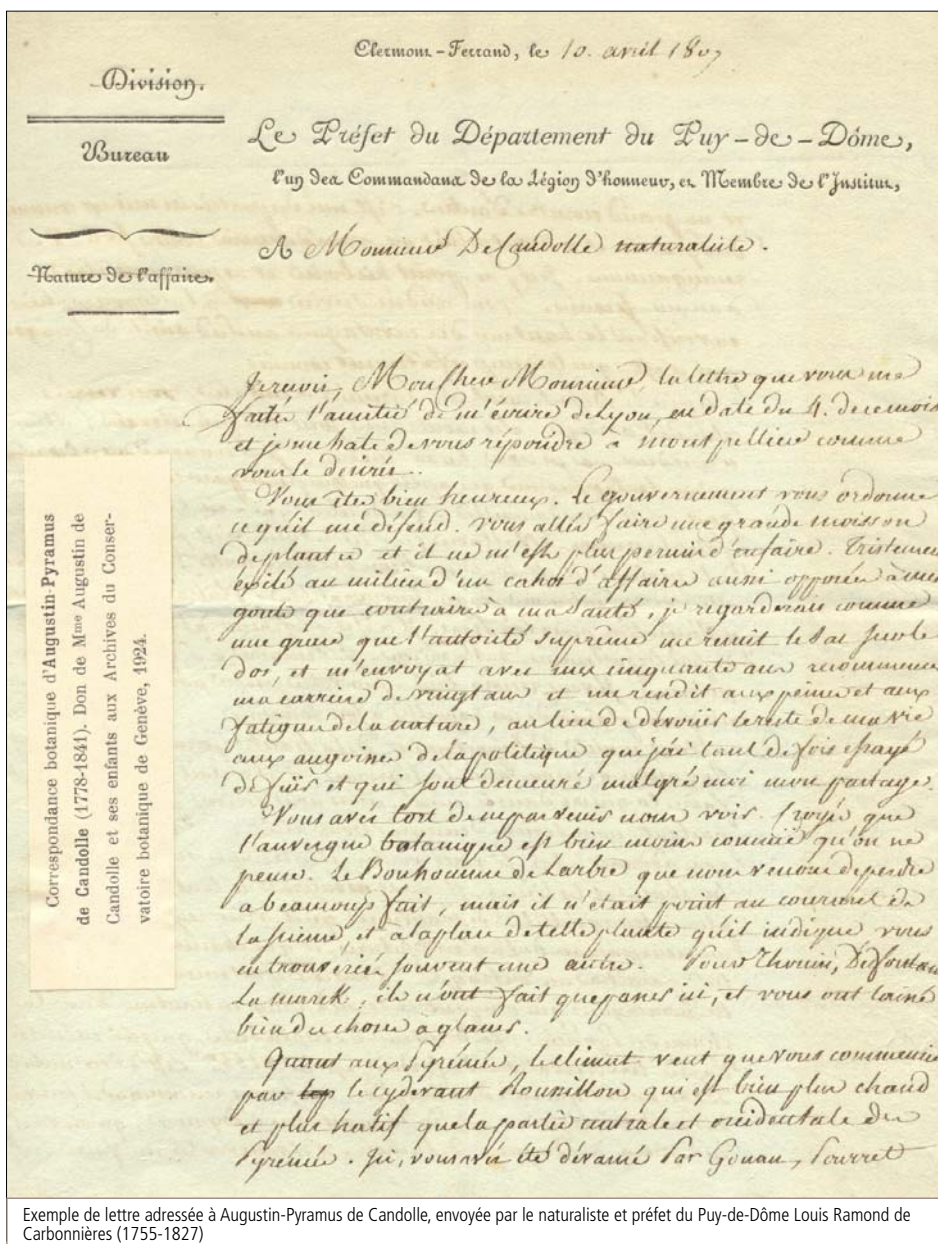 Clermont-Ferrand, le 10. avril 1807
Division.
Bureau
Nature de l'affaire.
Le Préfet du Département du Puy-de-Dôme,
l'un des Commandans de la Légion d'honneur, et Membre de l'Institut,
A Monsieur DeCandolle naturaliste.
Je reçois, Mon Cher Monsieur, la lettre que vous me
faites l'amitié de m'écrire de Lyon, en date du 4. de ce mois
et je me hate de vous répondre à montpellier comme
vous le desirés.
Vous êtes bien heureux. Le gouvernement vous ordonne
ce qu'il me défend. vous allés faire une grande moisson
de plantes et il ne m'est plus permis d'en faire. Tristement
exilé au milieu d'un cahos d'affaires aussi opposées à mes
gouts que contraires à ma santé, je regarderais comme
une grace que l'autorité suprême me remit le sac sur le
dos, et m'envoyat avec mes cinquante ans recommencer
ma carriere de vingt ans et me rendit aux peines et aux
fatigues de la nature, au lieu de dévouer le reste de ma vie
aux angoises de la politique que j'ai tant de fois essayé
de fuir et qui sont demeuré malgré moi mon partage.
Vous avés tort de ne pas venir nous voir. Croyés que
l'auvergne botanique est bien moins connue qu'on ne
pense. Le Bonhomme de Larbre que nous venons de perdre
a beaucoup fait, mais il n'était point au courant de
la science, et à la place de telle plante qu'il indique vous
en trouveriés souvent une autre. Pour Thouin, Desfontaines
La marck, ils n'ont fait que passer ici, et vous ont laissé
bien des choses à glaner.
Quant aux Pyrénées, le climat veut que vous commenciés
par le cydevant Roussillon qui est bien plus chaud
et plus hatif que la partie centrale et occidentale des
Pyrénées. Ici, vous avés été dévancé Par Gouan, Pourret
Correspondance botanique d'Augustin-Pyramus
de Candolle (1778-1841). Don de Mme Augustin de
Candolle et ses enfants aux Archives du Conser-
vatoire botanique de Genève, 1924.
Exemple de lettre adressée à Augustin-Pyramus de Candolle, envoyée par le naturaliste et préfet du Puy-de-Dôme Louis Ramond de
Carbonnières (1755-1827)